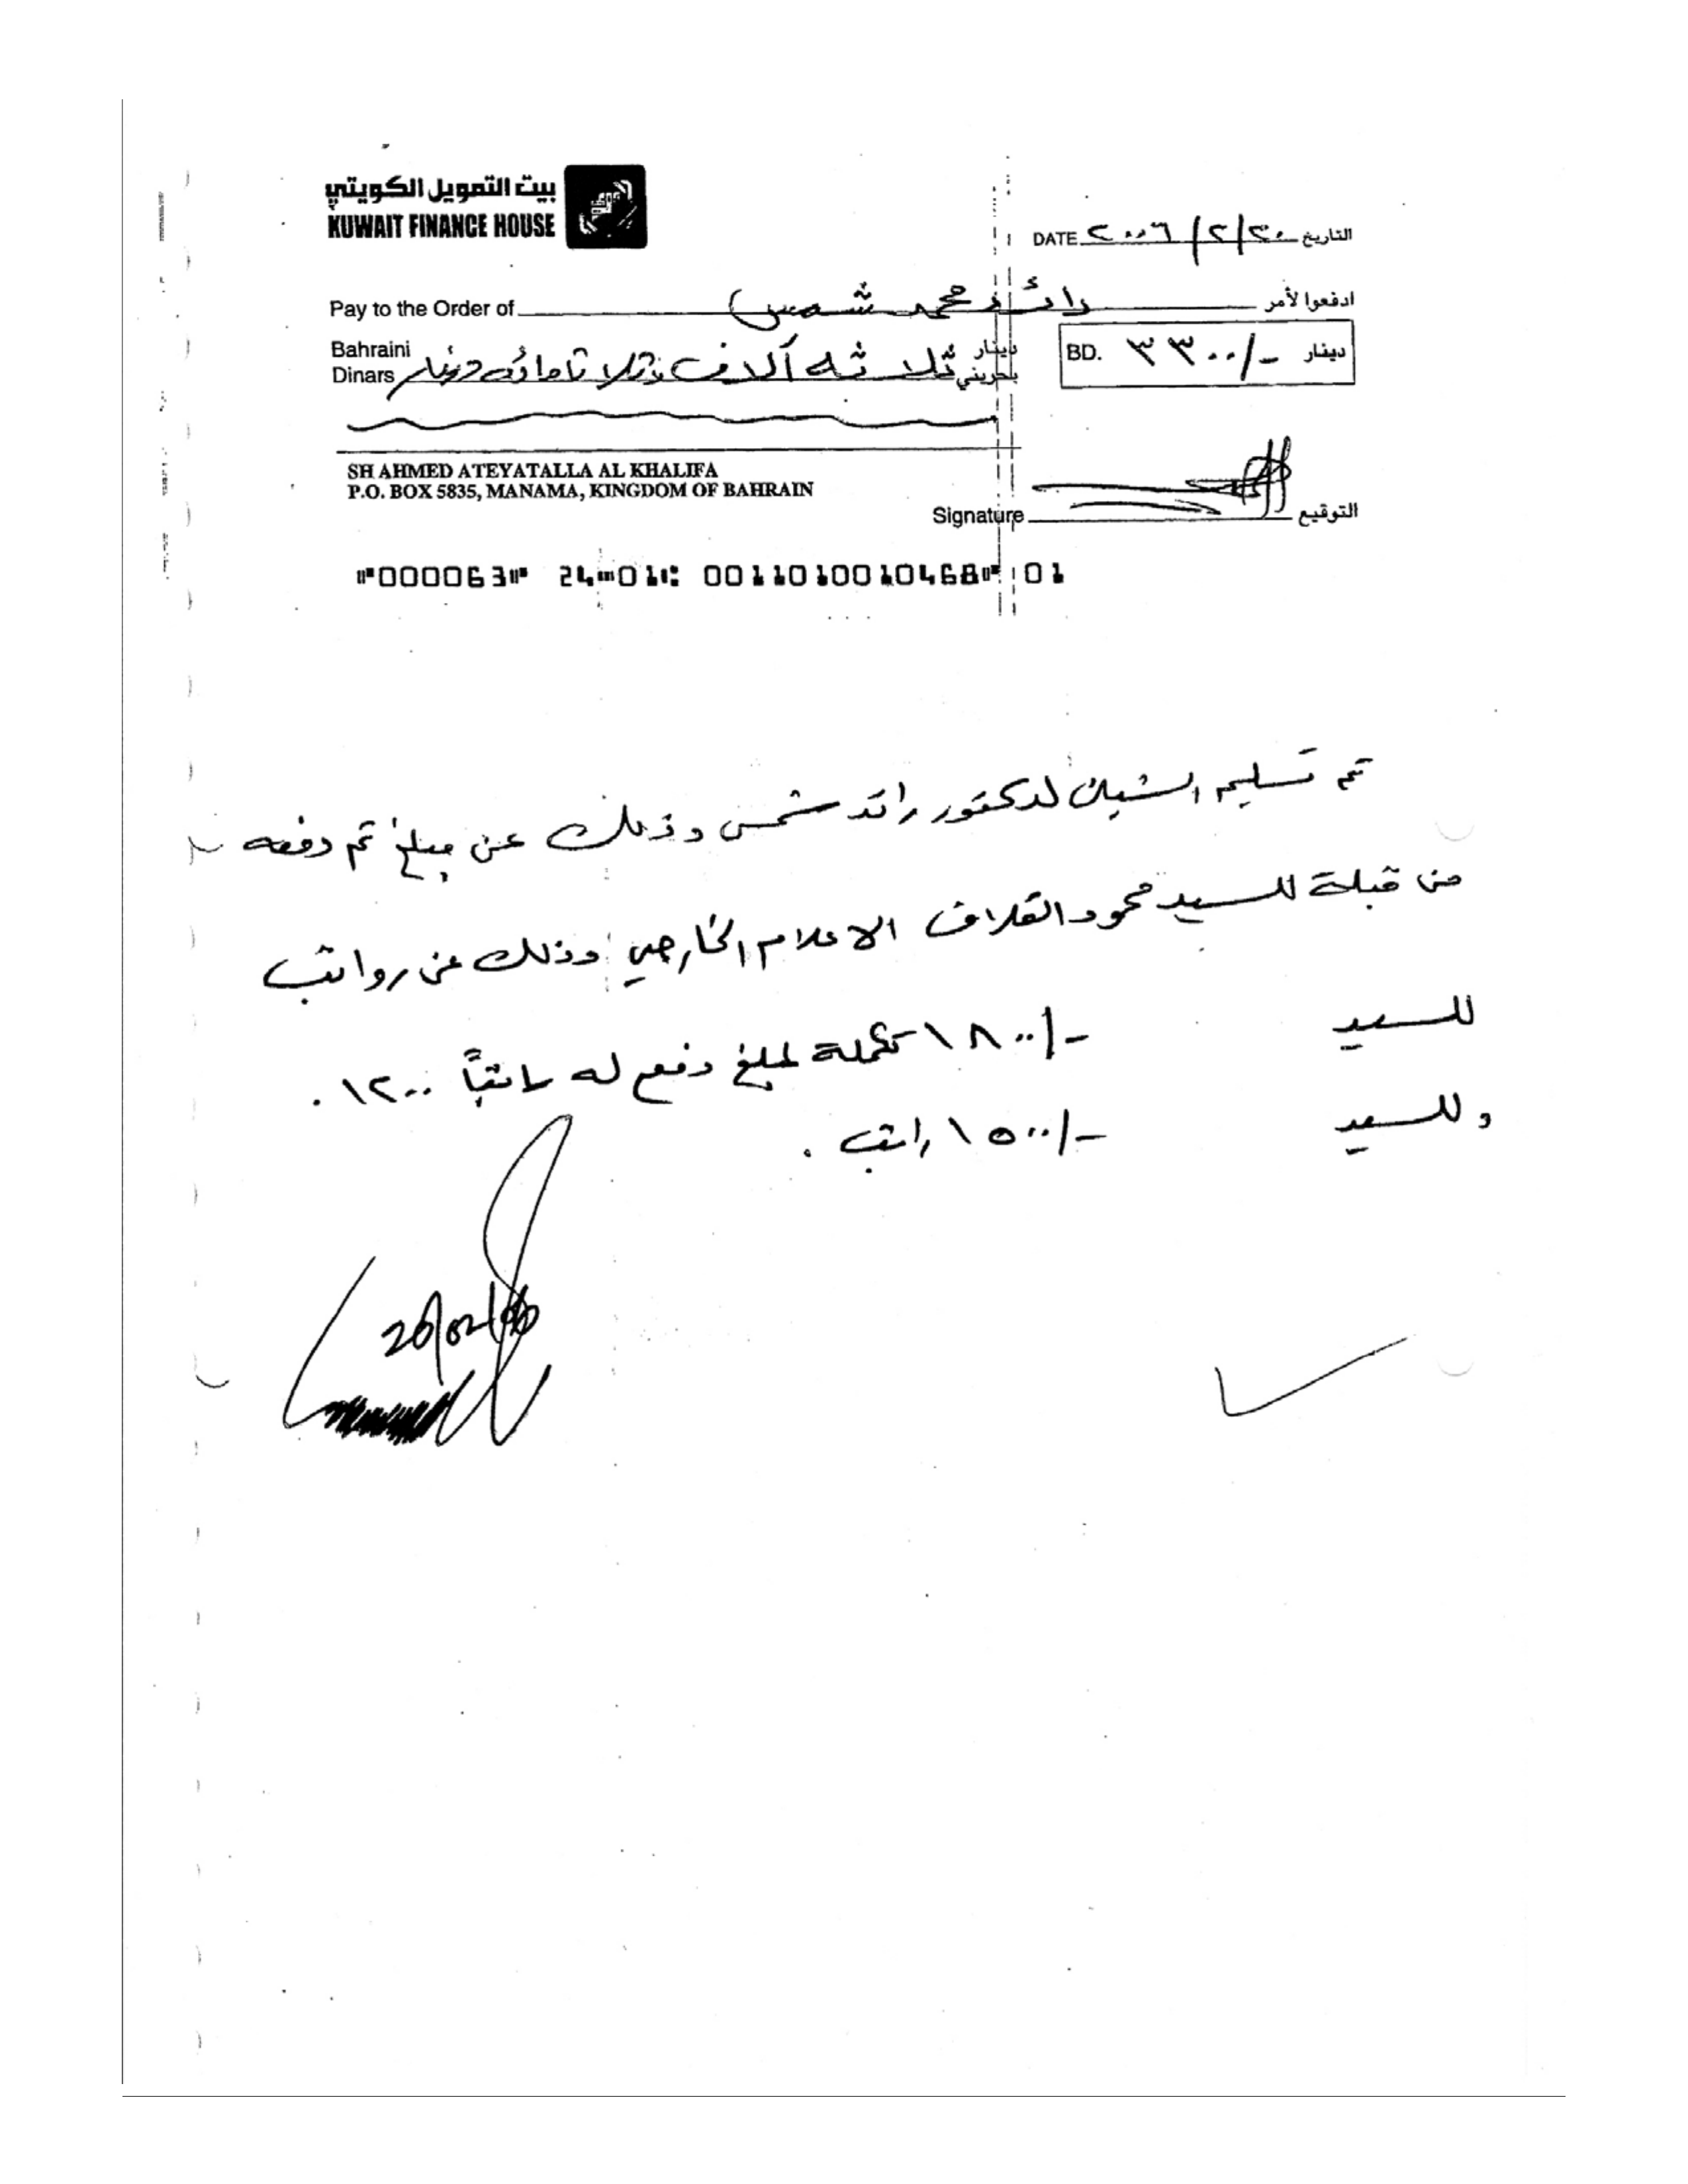 بيت التمويل الكويتي
KUWAIT FINANCE HOUSE
DATE ٢٠٠٦/٢/٢٠ التاريخ
Pay to the Order of رائد محمد شمس ادفعوا لأمر
Bahraini Dinars ثلاثه آلاف وثلاثمائه دينار دينار بحريني
BD. ٣٣٠٠/- دينار
SH AHMED ATEYATALLA AL KHALIFA
P.O. BOX 5835, MANAMA, KINGDOM OF BAHRAIN
Signature التوقيع
⑈000063⑈ 24⑉01⑆ 0011010010468⑈ 01
تم تسليم الشيك لدكتور رائد شمس وذلك عن مبلغ تم دفعه
من قبلة للسيد محمود القلاف الاعلام الخارجي وذلك عن رواتب
للسيد ١٨٠٠/- تكملة لمبلغ دفع له سابقاً ١٢٠٠ .
وللسيد ١٥٠٠/- راتب .